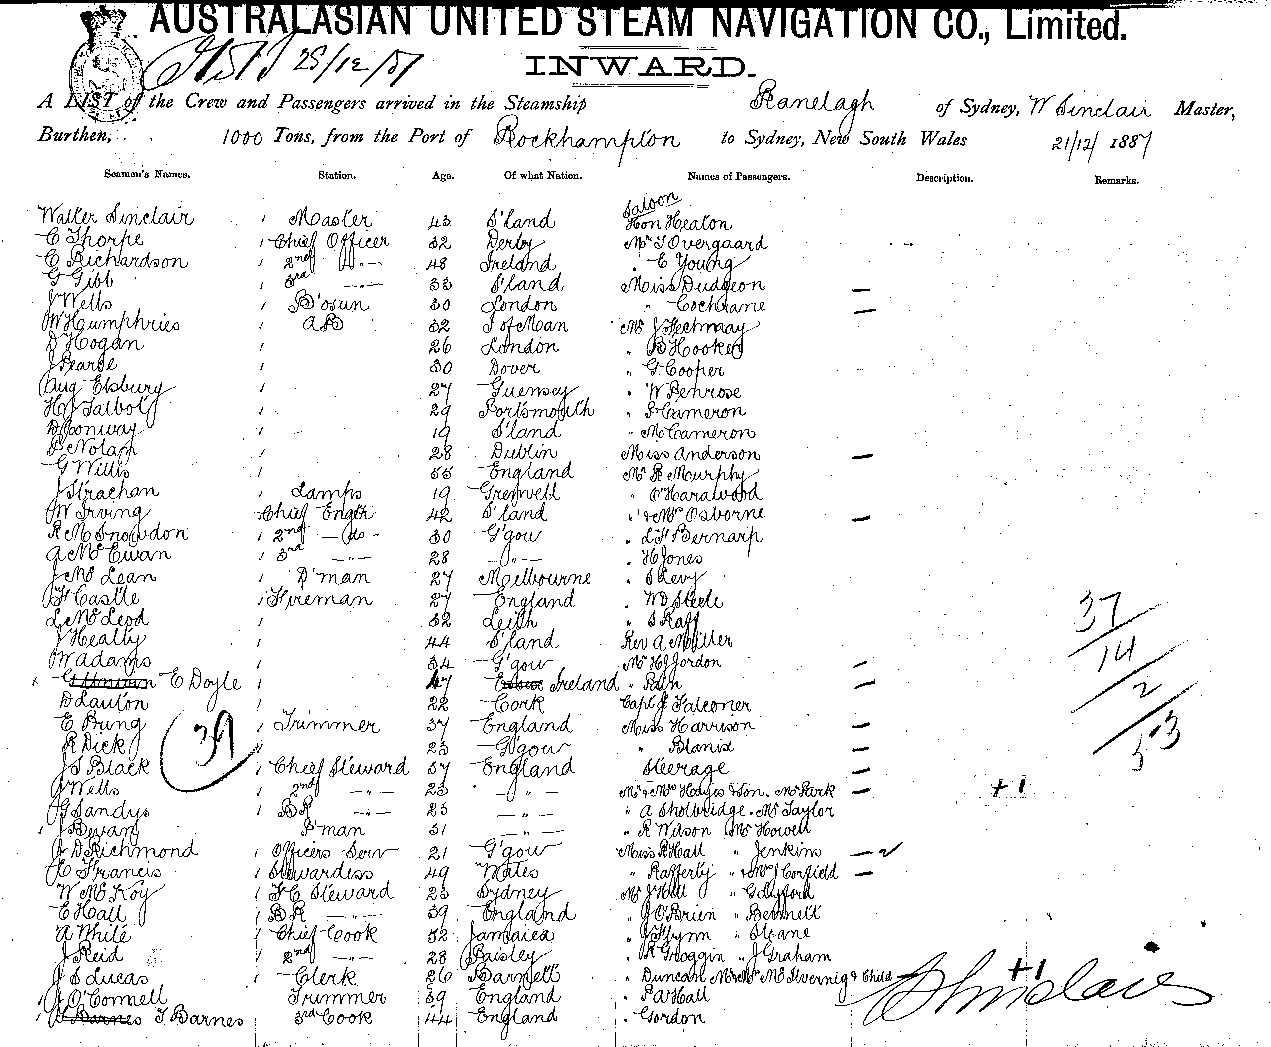 AUSTRALASIAN UNITED STEAM NAVIGATION CO., Limited.
25/12/87
INWARD.
A LIST of the Crew and Passengers arrived in the Steamship Ranelagh of Sydney, W Sinclair Master,
Burthen, 1000 Tons, from the Port of Rockhampton to Sydney, New South Wales 21/12/ 1887
Seamen's Names. Station. Age. Of what Nation. Names of Passengers. Description. Remarks.
Saloon
Walter Sinclair 1 Master 43 S'land Hon Heaton
C Thorpe 1 Chief Officer 32 Derby Mr J Overgaard
C Richardson 1 2nd 48 Ireland " C Young
G Gibb 1 3rd 33 S'land Miss Dudgeon
J Wells 1 B'osun 30 London " Cochrane
W Humphries 1 AB 32 I of Man Mr J
D Hogan 1 26 London " B Hooker
J Pearse 1 30 Dover " G Cooper
Aug Elsbury 1 27 Guernsey " W Penrose
H J Talbot 1 29 Portsmouth " Cameron
D Conway 1 19 S'land " Cameron
P Nolan 1 28 Dublin Miss Anderson
G Wills 1 55 England Mr R Murphy
J Strachan 1 Lamps 19 "
W Irving 1 Chief Engr 42 S'land " & Mrs Osborne
R M Snowdon 1 2nd - do - 30 G'gow "
A McEwan 1 3rd - " - 28 - " - " H Jones
J McLean 1 D'man 27 Melbourne " S Levy
F Castle 1 Fireman 27 England " Steele
L McLeod 1 32 Leith " S Raff
J Healty 1 44 S'land Rev A Miller
W Adams 1 34 G'gow Mr H J Jordon
x C Doyle 1 47 Ireland "
D Lauton 1 22 Cork Capt J Falconer
C Prung 1 Trimmer 37 England Miss Harrison
R Dick 1 23 G'gow "
J S Black 1 Chief Steward 37 England Steerage
J Wells 1 2nd - " - 23 - " - Mr & Mrs Hayes & Son. Mr Park +1
J G Sandys 1 BR - " - 23 - " - " A Sholbridge. Mr Taylor
1 J Bwan P'man 31 - " - " R Wilson Mr Howell
J D Richmond 1 Officers Serv 21 G'gow Miss R Hall " Jenkins
C Francis 1 Stewardess 49 Wales " Rafferty " & Mrs J Corfield
W McKoy 1 F C Steward 23 Sydney Mr J Hill " G
C Hall 1 BR - " - 39 England " J O'Brien " Bennett
A White 1 Chief Cook 52 Jamaica " J Flynn " Sloane
J Reid 1 2nd - " - 28 Paisley " R Groggin " J Graham
J S Lucas 1 Clerk 26 Barnett " Duncan & Child
1 J O'Connell Trimmer 39 England " P A Hall
1 T Barnes 3rd Cook 44 England " Gordon
39
37
14
2
53
+1
W Sinclair